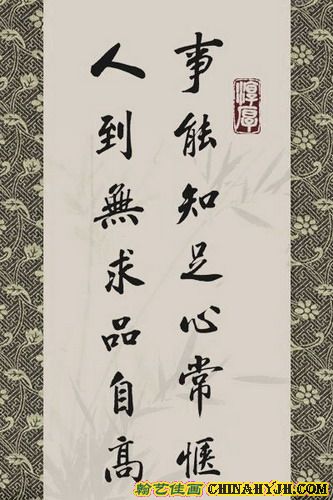 事能知足心常愜
人到無求品自高
淳厚
翰艺佳画 CHINAHYJH.COM